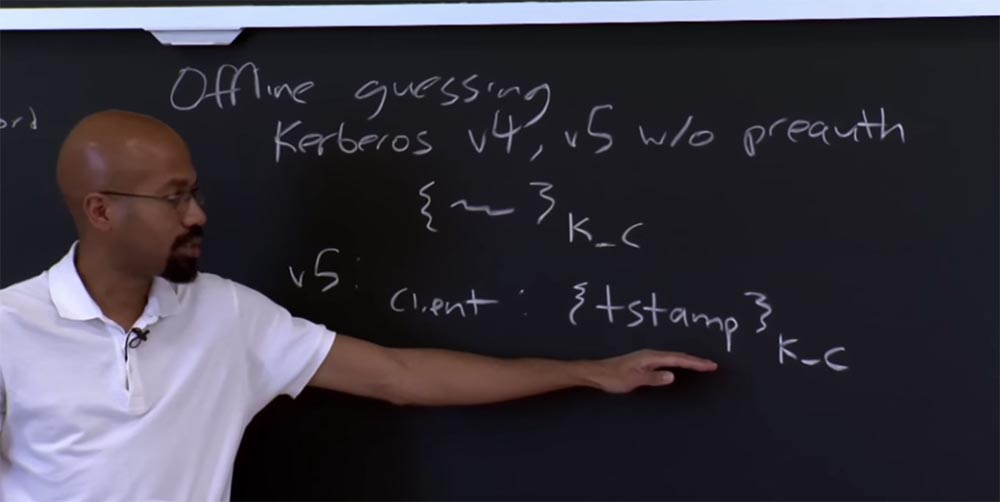 Offline guessing
Kerberos v4, v5 w/o preauth
{~}K_C
v5: Client: {tstamp}K_C